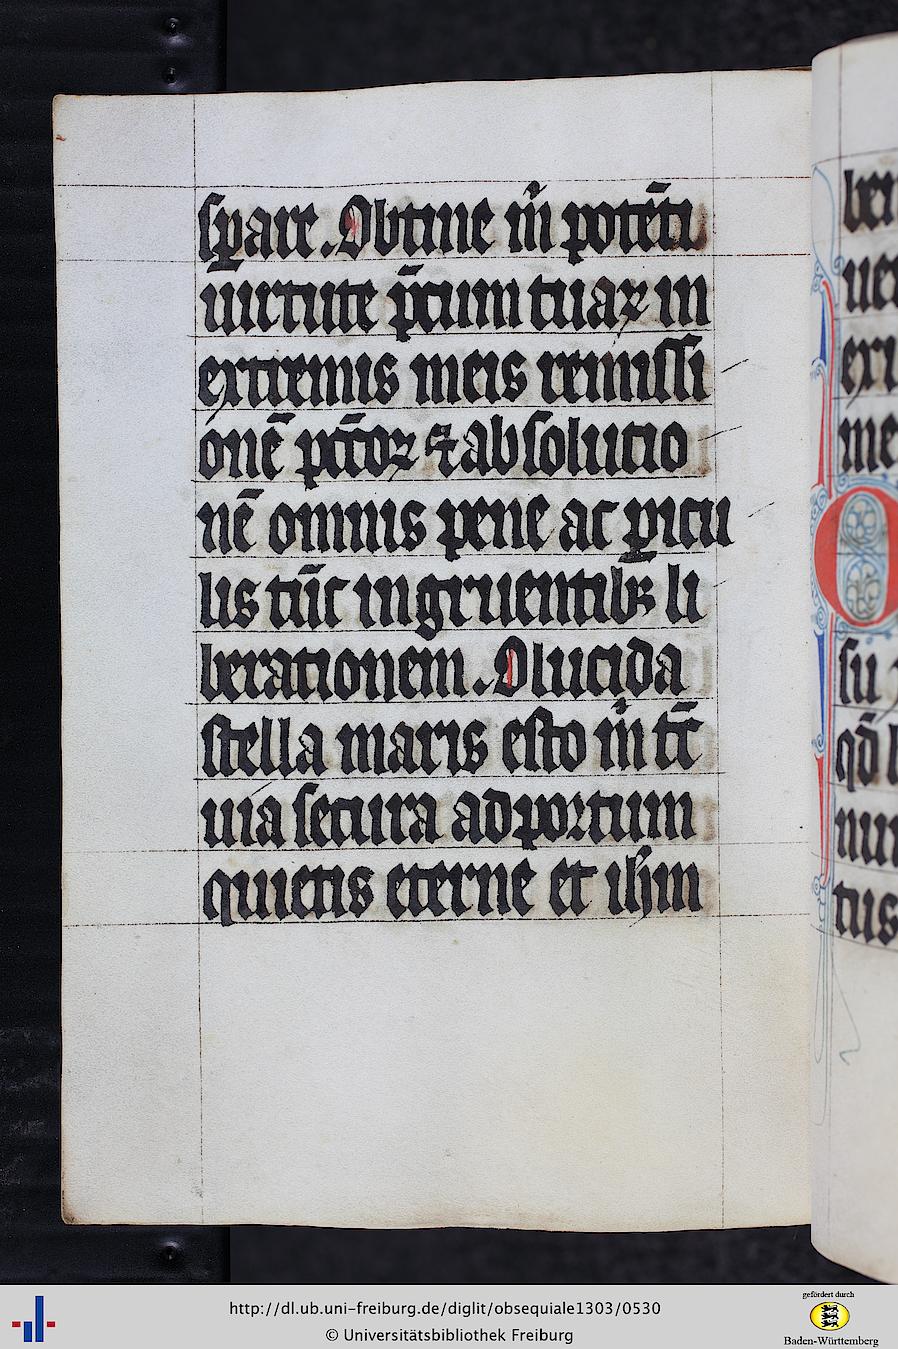 sꝑare. Obtine m̄ potēti
uirtute p̄cum tuaꝝ in
extremis meis remissi
onē pctōꝝ ⁊ absolutio
nē omnis pene ac ꝑicu
lis tūc ingruentibꝫ li
berationem. O lucida
stella maris esto m̄ tc̄
uia secura ad portum
quietis eterne et ihm̄
bei
uer
exi
me
su
qd̄
nun
tus
http://dl.ub.uni-freiburg.de/diglit/obsequiale1303/0530
© Universitätsbibliothek Freiburg
gefördert durch
Baden-Württemberg